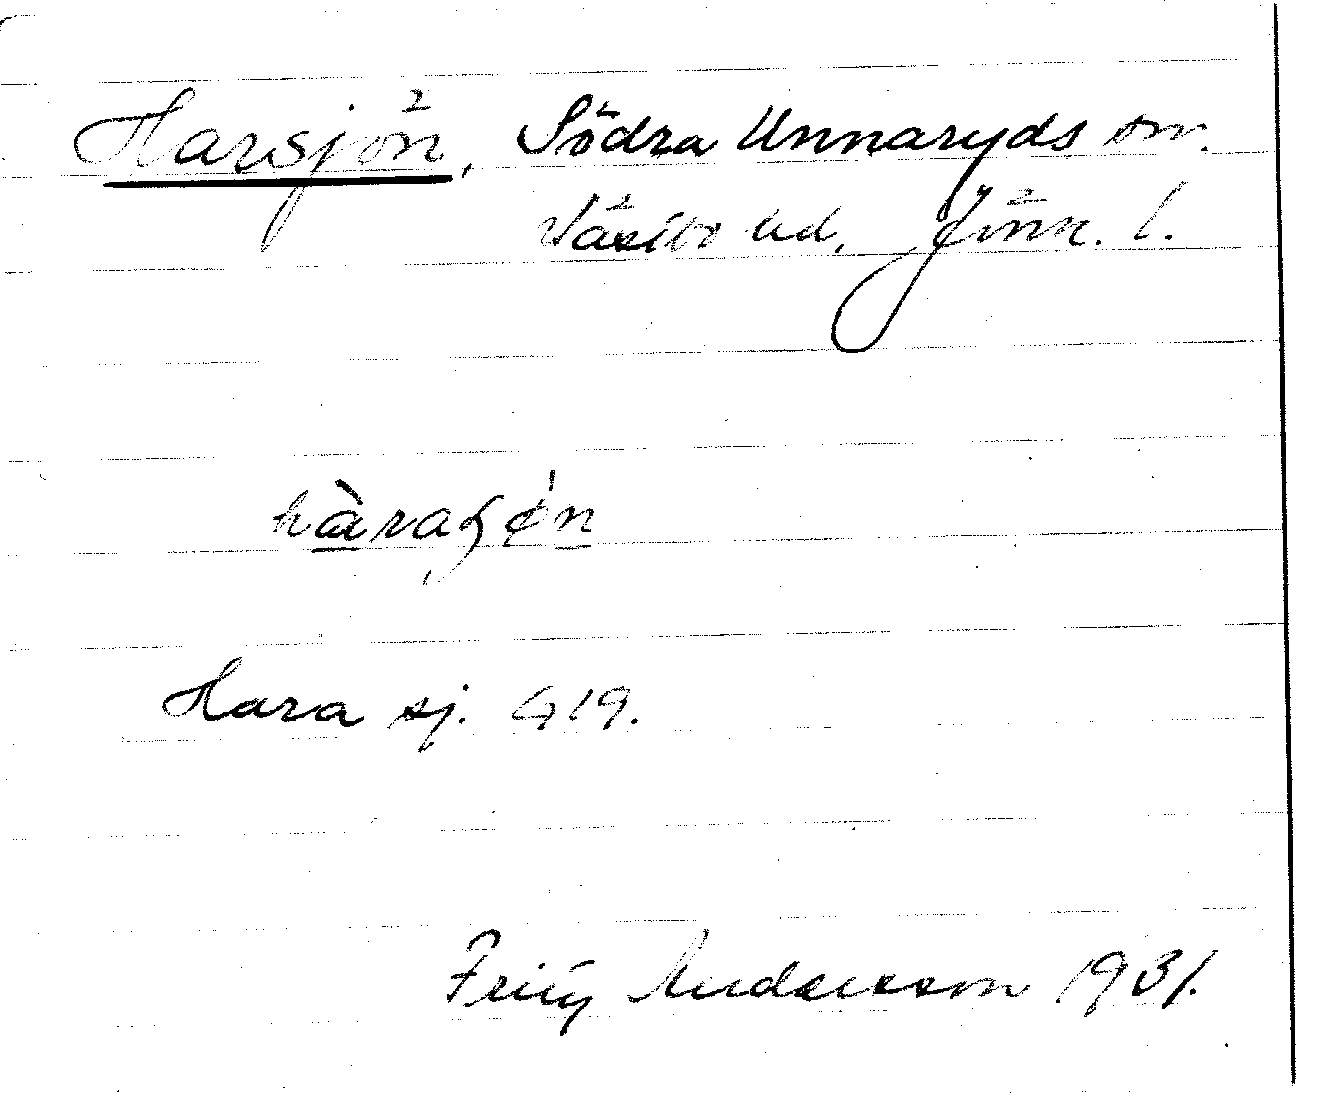 Harsjön, Södra Unnaryds sn.
Västbo hd, Jönk. l.
Hara sj. G 19.
Fritz Andersson 1931.